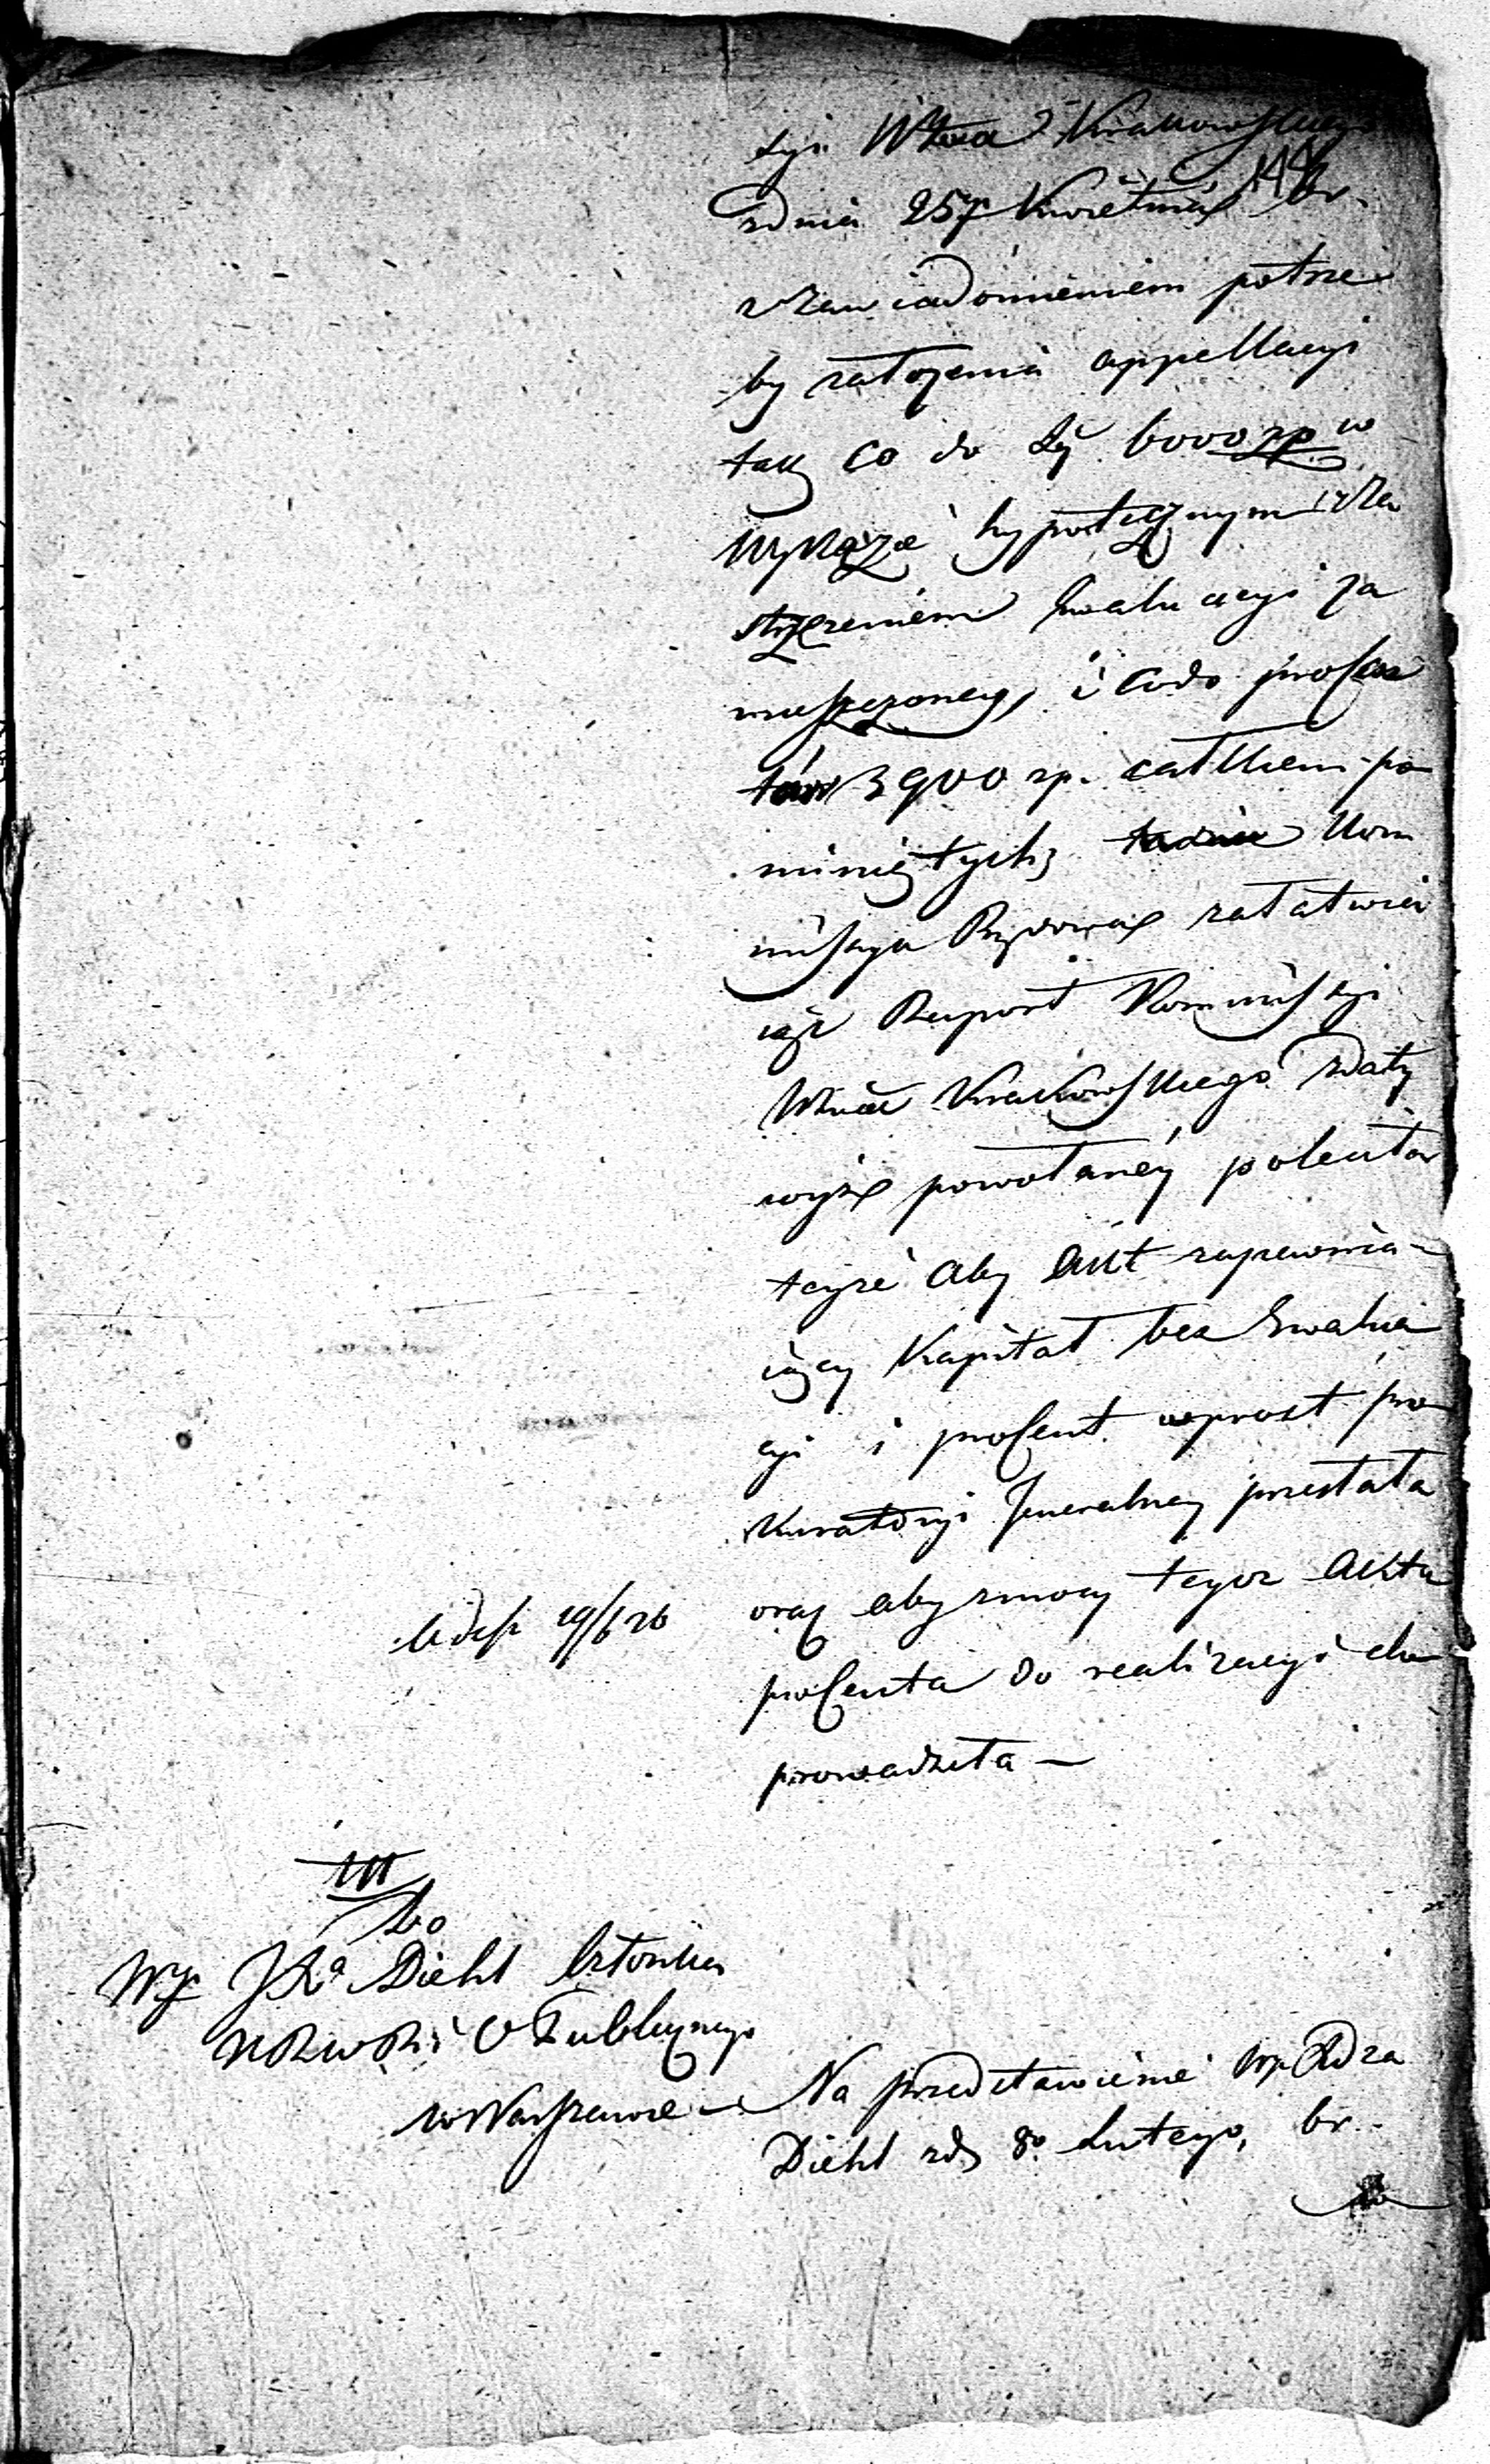 cyi Wztwa Krakowskiego
148
z dnia 25go Kwietnia br.
z zawiadomieniem potrze
by założenia appellacyi
tak co do tey 6000 zp w
Wykazie hypotecznym z za
strzeżeniem Ewaluacyi za
mieszczoney, i co do procen
tów 3900 zp. całkiem po
miniętych, Kom
missya Rządowa załatwia
iąc Raport Kommissyi
Wztwa Krakowskiego z daty
wyże powołaney poleciła
teyże aby Akt zapewnia-
iący Kapitał bez Ewalua
cyi i procent wprost Pro
kuratoryi Jeneralney przesłała
oraz aby z mocy tegoż Aktu
procenta do realizacyi do
prowadziła —
19/6 26
III
Do
Wgo JXa Diehl Członka
KRzWR i O Publicznego
w Warszawie —
Na przedstawienie Wgo Xdza
Diehl z d. 8o Lutego, br.